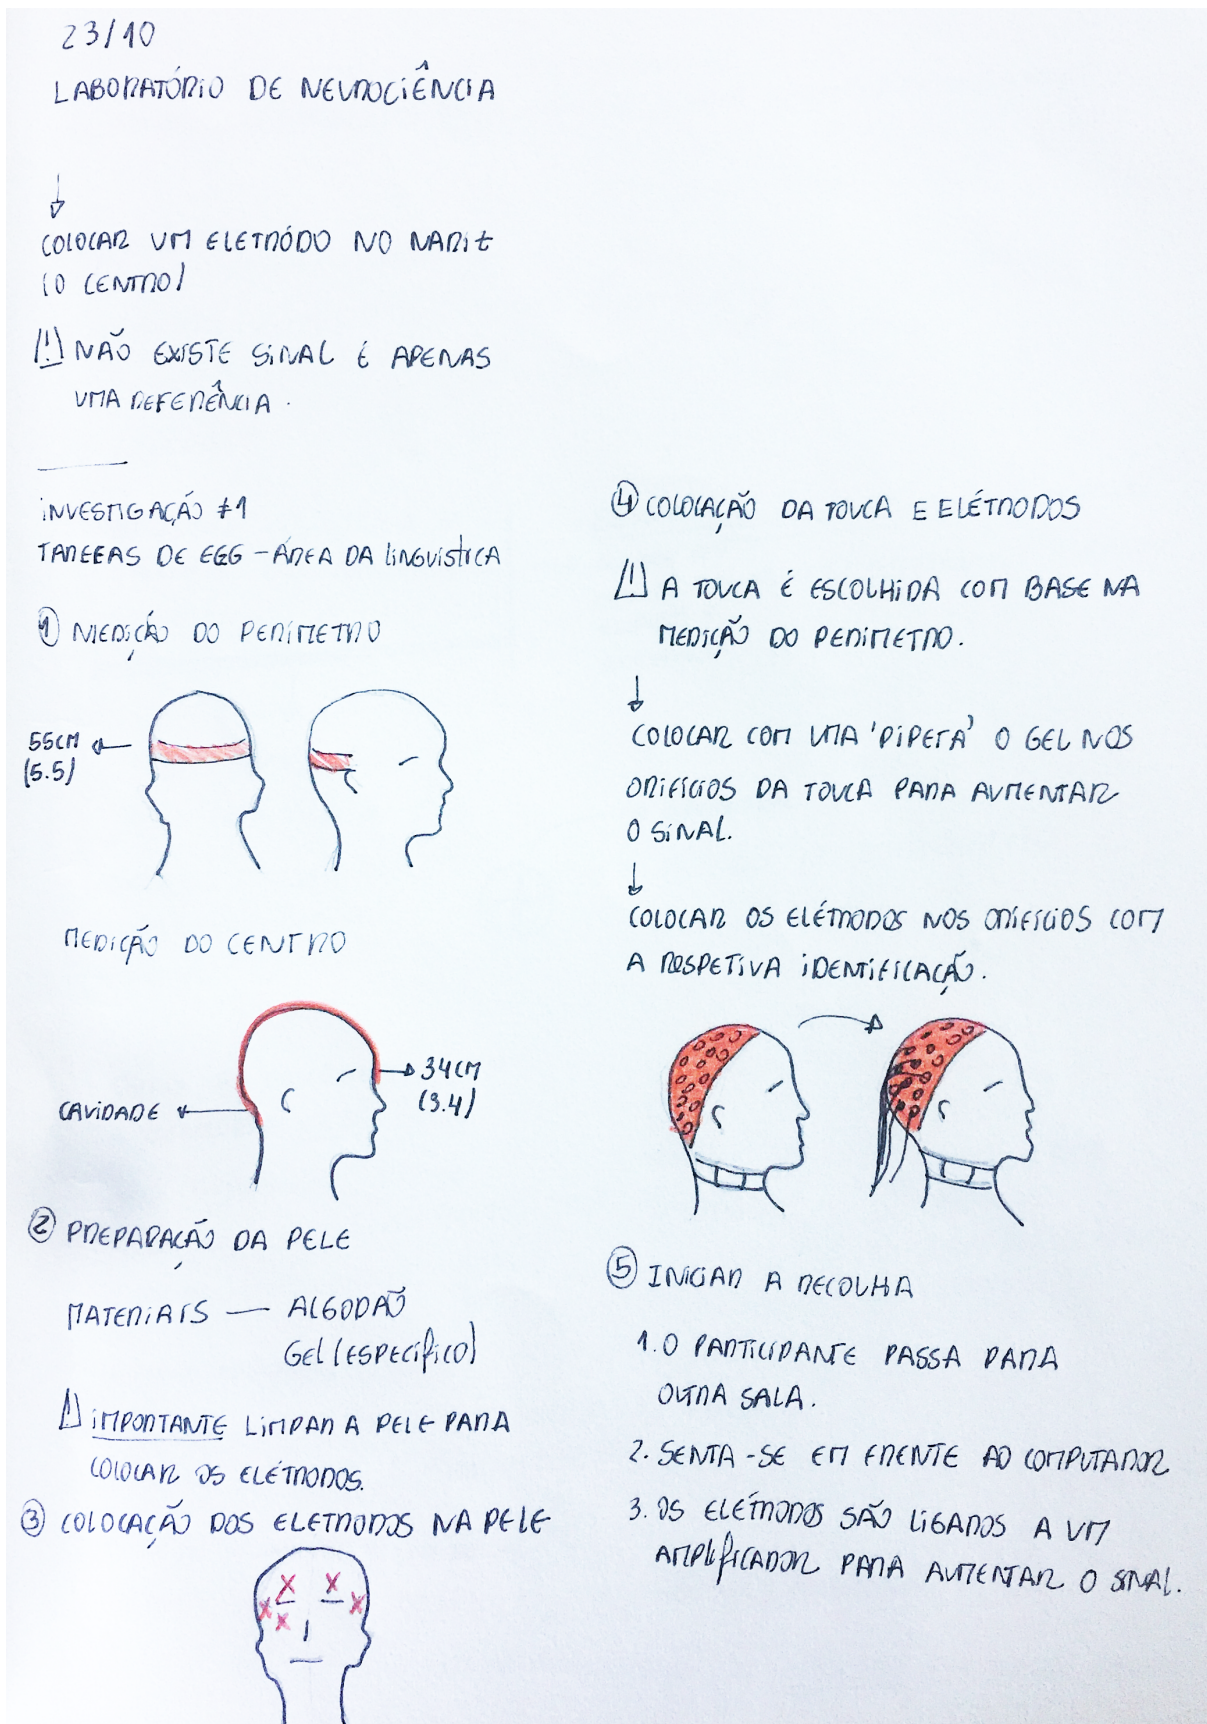 23/10
LABORATÓRIO DE NEUROCIÊNCIA
↓
COLOCAR UM ELETRÓDO NO NARIZ
(O CENTRO)
⚠ NÃO EXISTE SINAL É APENAS
UMA REFERÊNCIA.
INVESTIGAÇÃO #1
TAREFAS DE EGG - ÁREA DA LINGUÍSTICA
① MEDIÇÃO DO PERÍMETRO
55CM
(5.5)
MEDIÇÃO DO CENTRO
34CM
(3.4)
CAVIDADE
② PREPARAÇÃO DA PELE
MATERIAIS — ALGODÃO
GEL (ESPECÍFICO)
⚠ IMPORTANTE LIMPAR A PELE PARA
COLOCAR OS ELÉTRODOS.
③ COLOCAÇÃO DOS ELETRODOS NA PELE
④ COLOCAÇÃO DA TOUCA E ELÉTRODOS
⚠ A TOUCA É ESCOLHIDA COM BASE NA
MEDIÇÃO DO PERIMETRO.
↓
COLOCAR COM UMA 'PIPETA' O GEL NOS
ORIFÍCIOS DA TOUCA PARA AUMENTAR
O SINAL.
↓
COLOCAR OS ELÉTRODOS NOS ORIFÍCIOS COM
A RESPETIVA IDENTIFICAÇÃO.
⑤ INICIAR A RECOLHA
1. O PARTICIPANTE PASSA PARA
OUTRA SALA.
2. SENTA-SE EM FRENTE AO COMPUTADOR
3. OS ELÉTRODOS SÃO LIGADOS A UM
AMPLIFICADOR PARA AUMENTAR O SINAL.